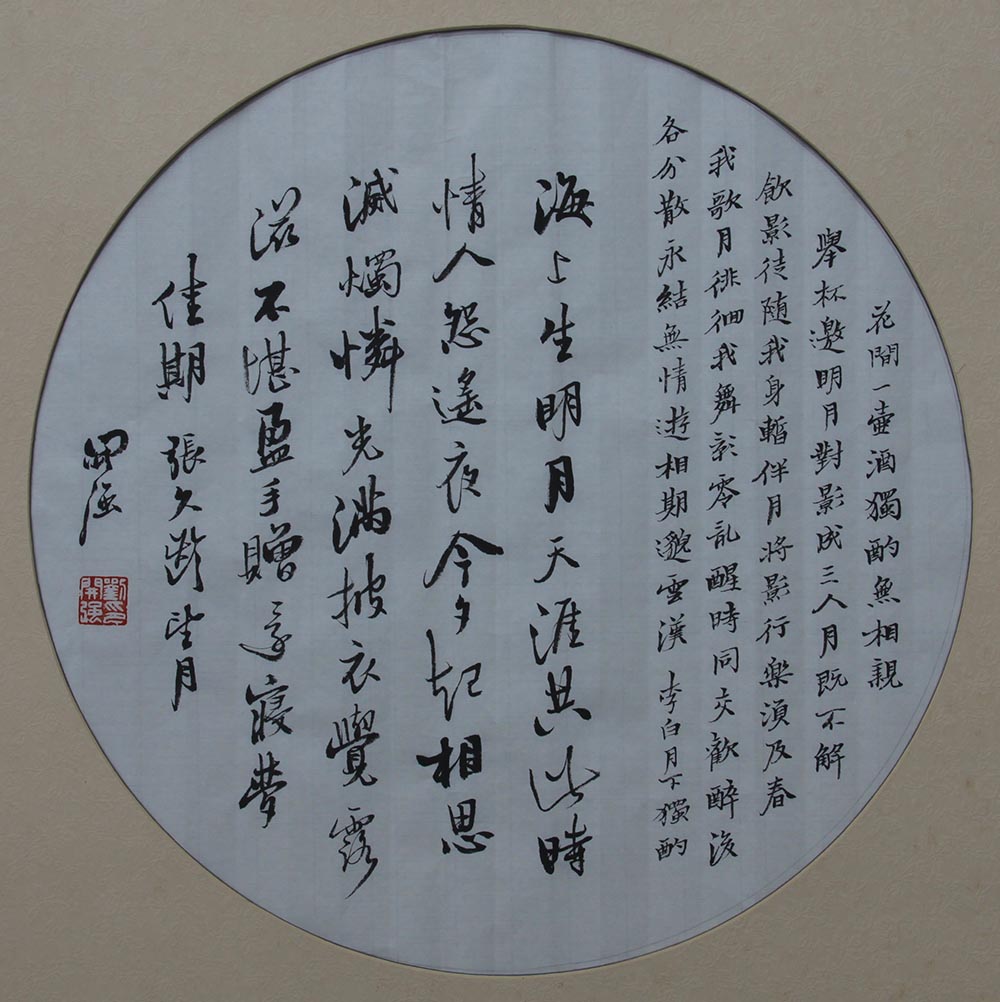 花間一壺酒獨酌無相親
舉杯邀明月對影成三人月既不解
飲影徒随我身暫伴月将影行樂須及春
我歌月徘徊我舞影零乱醒時同交歡醉後
各分散永結無情遊相期邈雲漢 李白月下獨酌
海上生明月天涯共此時
情人怨遙夜今夕起相思
滅燭憐光滿披衣覺露
滋不堪盈手贈還寢夢
佳期 張九齡望月
開強
劉印
開強